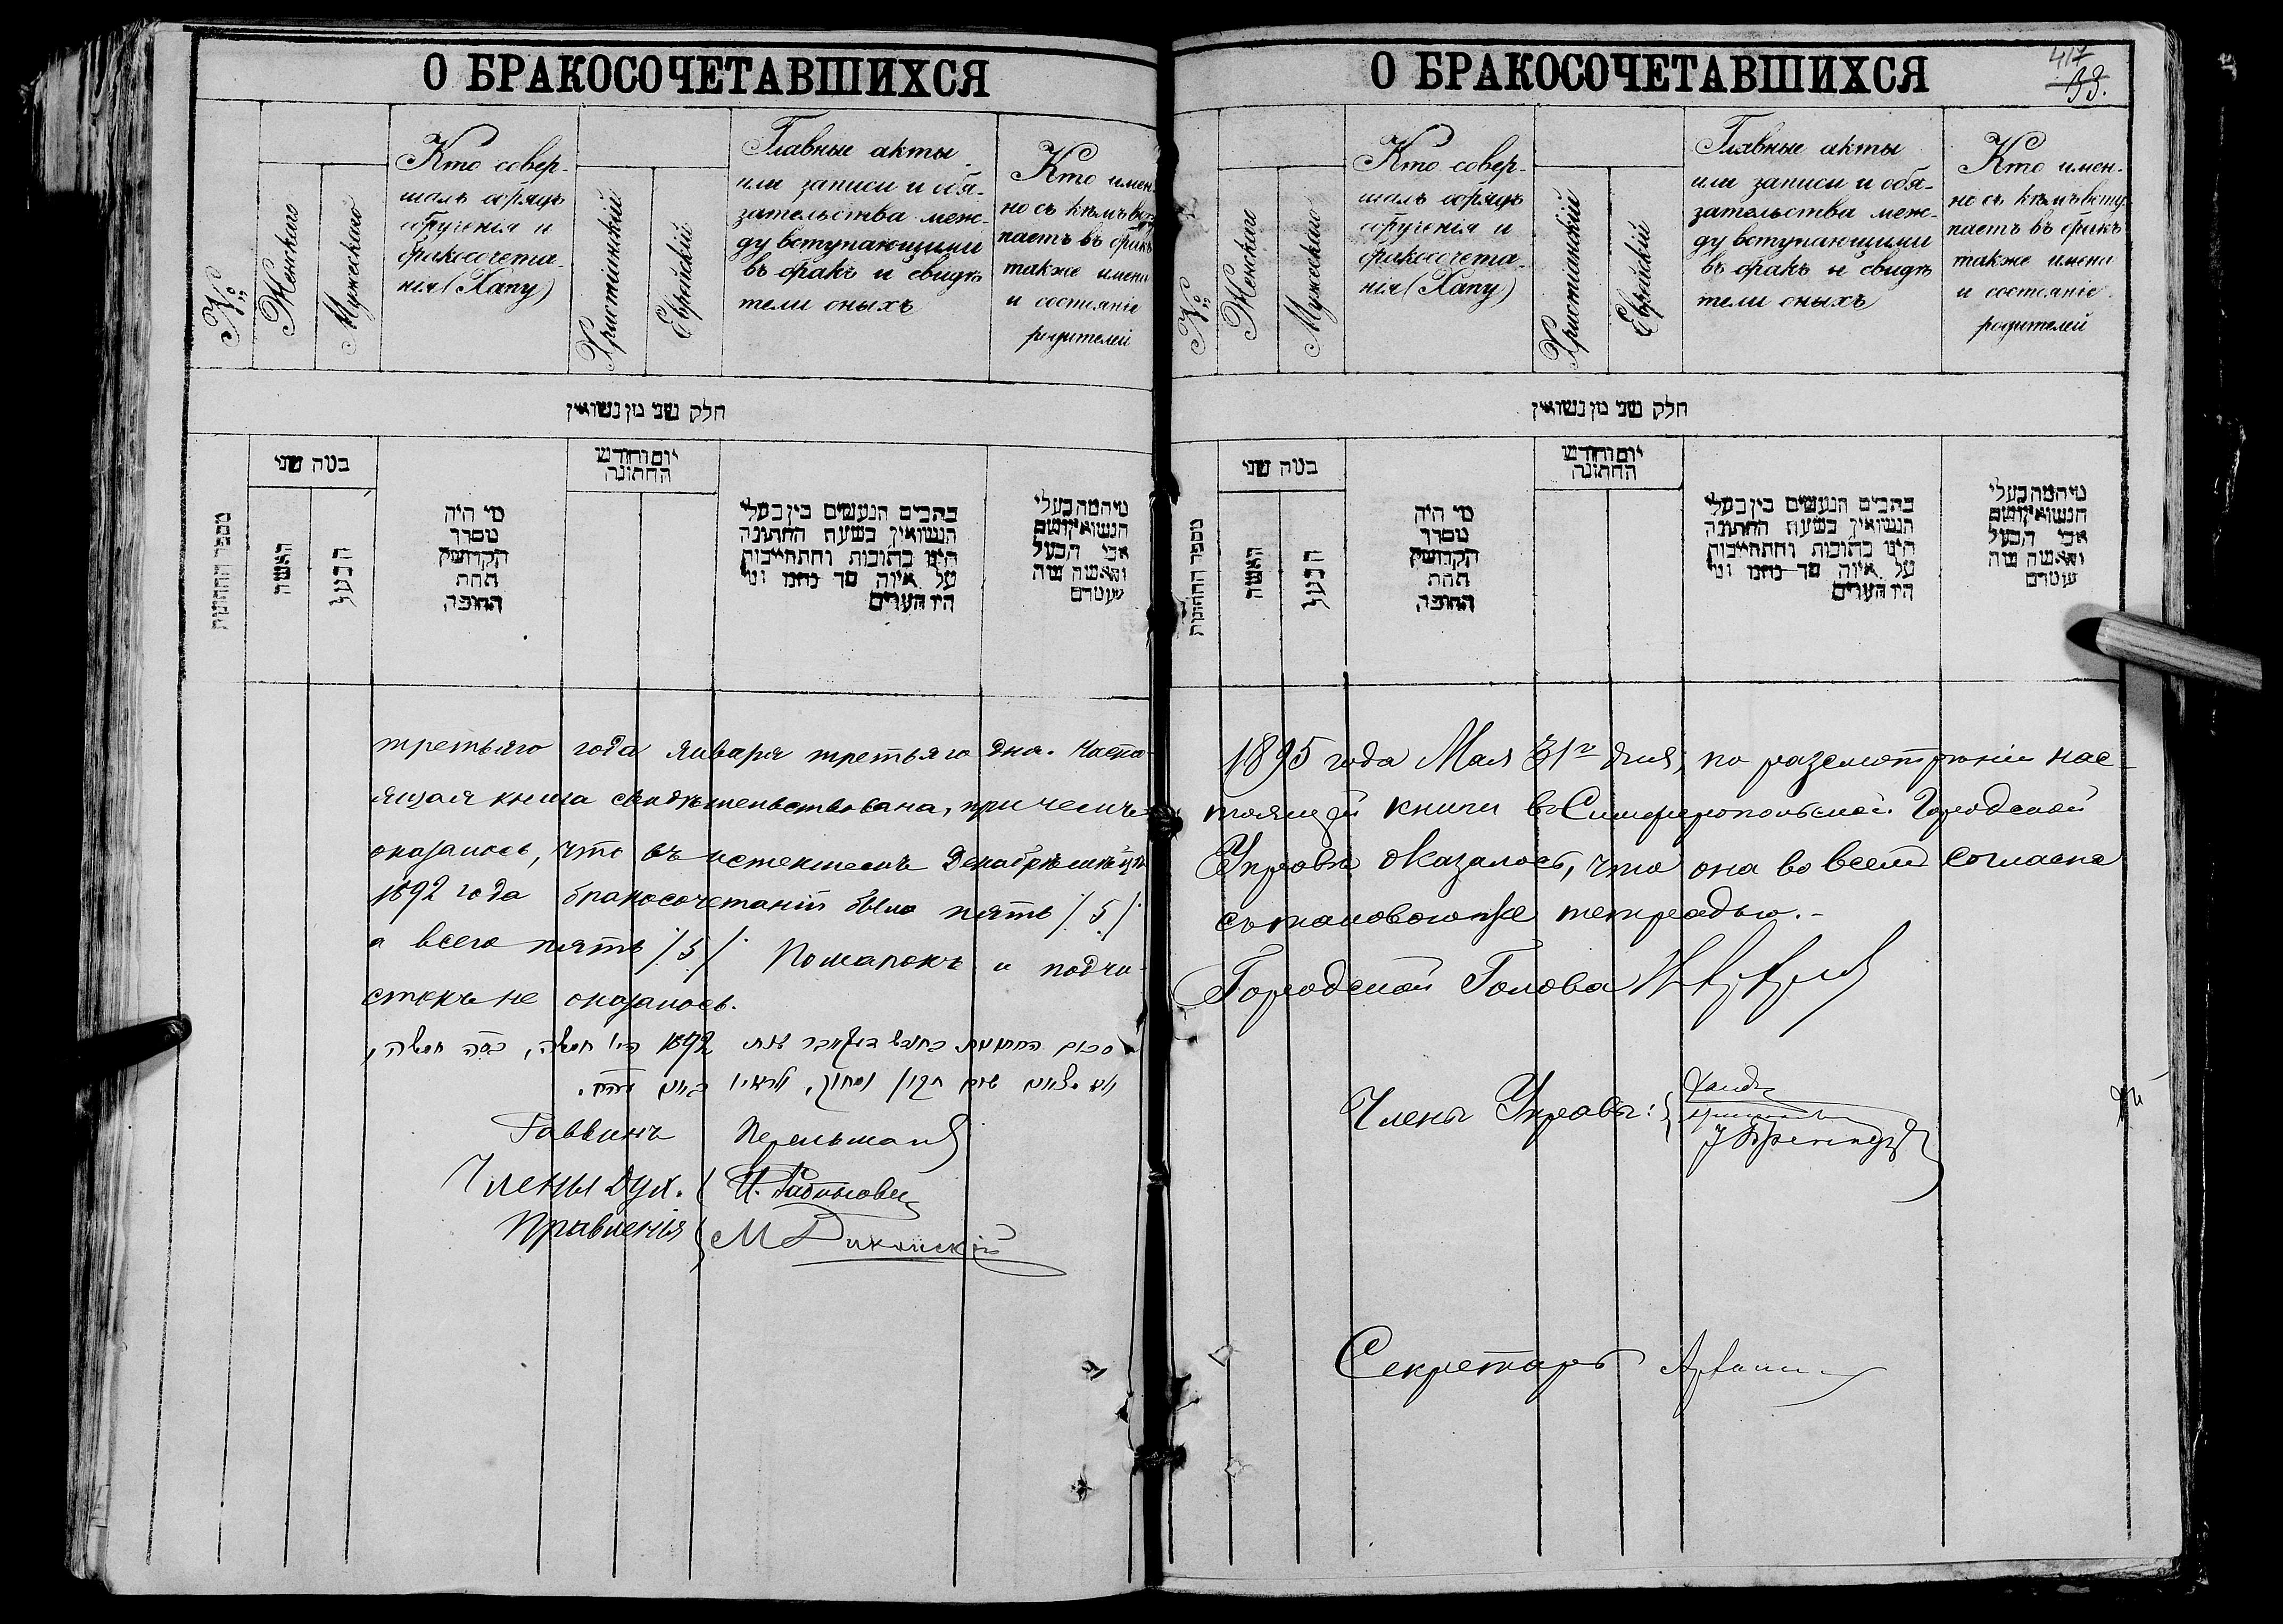 О БРАКОСОЧЕТАВШИХСЯ
№
Женскаго
Мужескаго
Кто совер-
шалъ обрядъ
обрученія и
бракосочета-
нія (Хапу)
Христіанскій
Еврейскій
Главные акты
или записи и обя-
зательства меж-
ду вступающими
въ бракъ и свидѣ
тели оныхъ
Кто имен-
но съ кѣмъ всту
паетъ въ бракъ
также имена
и состояніе
родителей
חלק שני מן נשואין
מספר החתונות
כמה שני
האשה
הבעל
מי היה
מסדר
הקדושין
תחת
החופה
יום וחודש
החתונה
כתבים הנעשים בין בעלי
הנשואין בשעת החתונה
היינו כתובות והתחייבות
על איזה סך
היו העדים
אבי הבעל
третьяго года Января третьяго дня. Насто-
ящая книга свидѣтельствована, при чемъ
оказалось, что въ истекшемъ Декабрѣ мѣсяцѣ
1892 года бракосочетаній было пять /5/
а всего пять /5/. Помарокъ и подчи-
стокъ не оказалось.
1892 היו חמשה, חמשה,
Раввинъ Перельманъ
Члены Дух.
Правленія
О БРАКОСОЧЕТАВШИХСЯ
417
99.
№
Женскаго
Мужескаго
Кто совер-
шалъ обрядъ
обрученія и
бракосочета-
нія (Хапу)
Христіанскій
Еврейскій
Главные акты
или записи и обя-
зательства меж-
ду вступающими
въ бракъ и свидѣ
тели оныхъ
Кто имен-
но съ кѣмъ всту
паетъ въ бракъ
также имена
и состояніе
родителей
חלק שני מן נשואין
מספר החתונות
כמה שני
האשה
הבעל
מי היה
מסדר
הקדושין
תחת
החופה
יום וחודש
החתונה
כתבים הנעשים בין בעלי
הנשואין בשעת החתונה
היינו כתובות והתחייבות
על איזה סך
היו העדים
אבי הבעל
1895 года Мая 31го дня, по разсмотрѣніи нас-
тоящей книги въ Симферопольской Городской
Управѣ оказалось, что она во всемъ согласна
съ таковою же тетрадью.-
Городской Голова
Члены Управы:
Секретарь